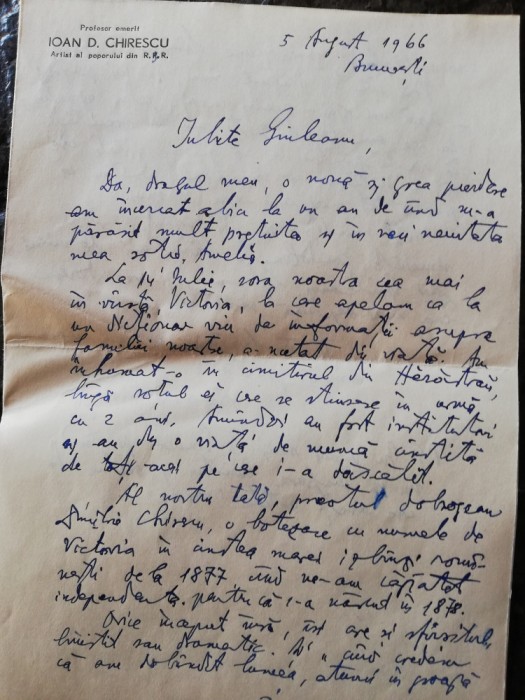 Profesor emerit
IOAN D. CHIRESCU
Artist al poporului din R.P.R.
5 August 1966
București
Iubite Giuleanu,
Da, dragul meu, o nouă și grea pierdere
am încercat abia la un an de când m-a
părăsit mult prețuita și în veci neuitata
mea soție, Amelia.
La 14 Iulie, sora noastră cea mai
în vârstă Victoria, la care apelam ca la
un dicționar viu de informații asupra
familiei noastre, a încetat din viață. Am
inhumat-o în cimitirul din Herăstrău,
lângă soțul ei care se stinsese în urmă
cu 2 ani. Amândoi au fost institutori
și au dus o viață de muncă cinstită
de toți acei pe care i-a dăscălit.
Al nostru tată, preotul dobrogean
Dimitrie Chirescu, o botezare cu numele de
Victoria în cinstea marei izbânzi româ-
nești de la 1877 când ne-am căpătat
independența, pentru că s-a născut în 1878.
Orice început însă, își are și sfârșitul
liniștit sau dramatic. Și "când credem
că am dobândit lumea, atunci în groapă